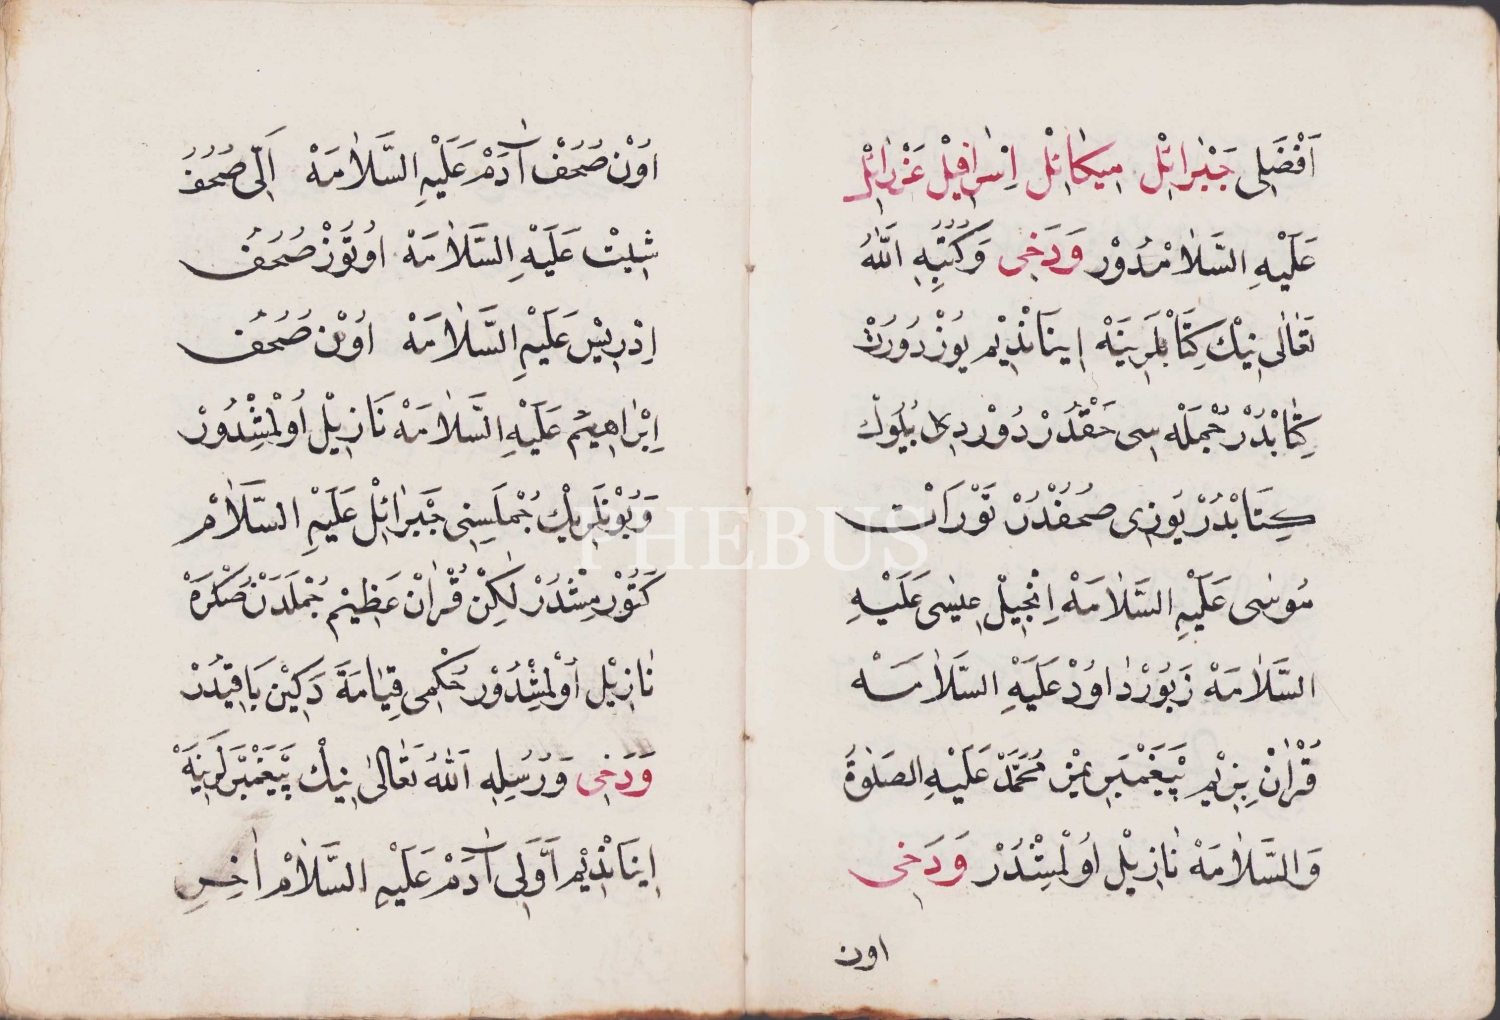 اَفْضَلِى جَبْرَائِلْ مِيكَائِلْ اِسْرَافِيلْ عَزْرَائِلْ
عَلَيْهِ السَّلَامْدُوْر وَدَخِى وَكُتُبِهِ اَللّٰهُ
تَعَالٰى نِيْكْ كِتَابْلَرِينَهْ اِينَانْدِيْم يُوزْ دُورْتْ
كِتَابْدُرْ جُمْلَه سِى حَقْدُرْ دُوْردِى بُيُوكْ
كِتَابْدُرْ يُوزِى صُحُفْدُرْ تَوْرَاتْ
مُوسٰى عَلَيْهِ السَّلَامَهْ اِنْجِيْل عِيسٰى عَلَيْهِ
السَّلَامَهْ زَبُورْ دَاوُدْ عَلَيْهِ السَّلَامَهْ
قُرْاٰنْ بِزِيْم پَيْغَمْبَرِيمِزْ مُحَمَّدْ عَلَيْهِ الصَلٰوةُ
وَالسَّلَامَهْ نَازِيْل اُوْلْمِشْدُرْ وَدَخِى
اون
اوُنْ صُحُفْ اٰدَمْ عَلَيْهِ السَّلَامَهْ اَلّٖى صُحُفْ
شِيتْ عَلَيْهِ السَّلَامَهْ اوُتُوزْ صُحُفْ
اِدْرِيسْ عَلَيْهِ السَّلَامَهْ اوُنْ صُحُفْ
اِبْرَاهِيمْ عَلَيْهِ السَّلَامَهْ نَازِيْل اُوْلْمِشْدُورْ
وَبُوْنلَرِيكْ جُمْلَسِنِى جَبْرَائِلْ عَلَيْهِ السَّلَامْ
كَتُوْرمِشْدُرْ لٰكِنْ قُرْاٰنْ عَظِيْمْ جُمْلَدَنْ صُكْرَهْ
نَازِيْل اُوْلْمِشْدُوْر حُكْمِى قِيَامَةَ دَكِيْن بَاقِيدُرْ
وَدَخِى وَرُسُلِهِ اَللّٰهُ تَعَالٰى نِيْكْ پَيْغَمْبَرْلَرِينَهْ
اِينَانْدِيْم اَوَّلِى اٰدَمْ عَلَيْهِ السَّلَامْ اٰخِرِ
PHEBUS